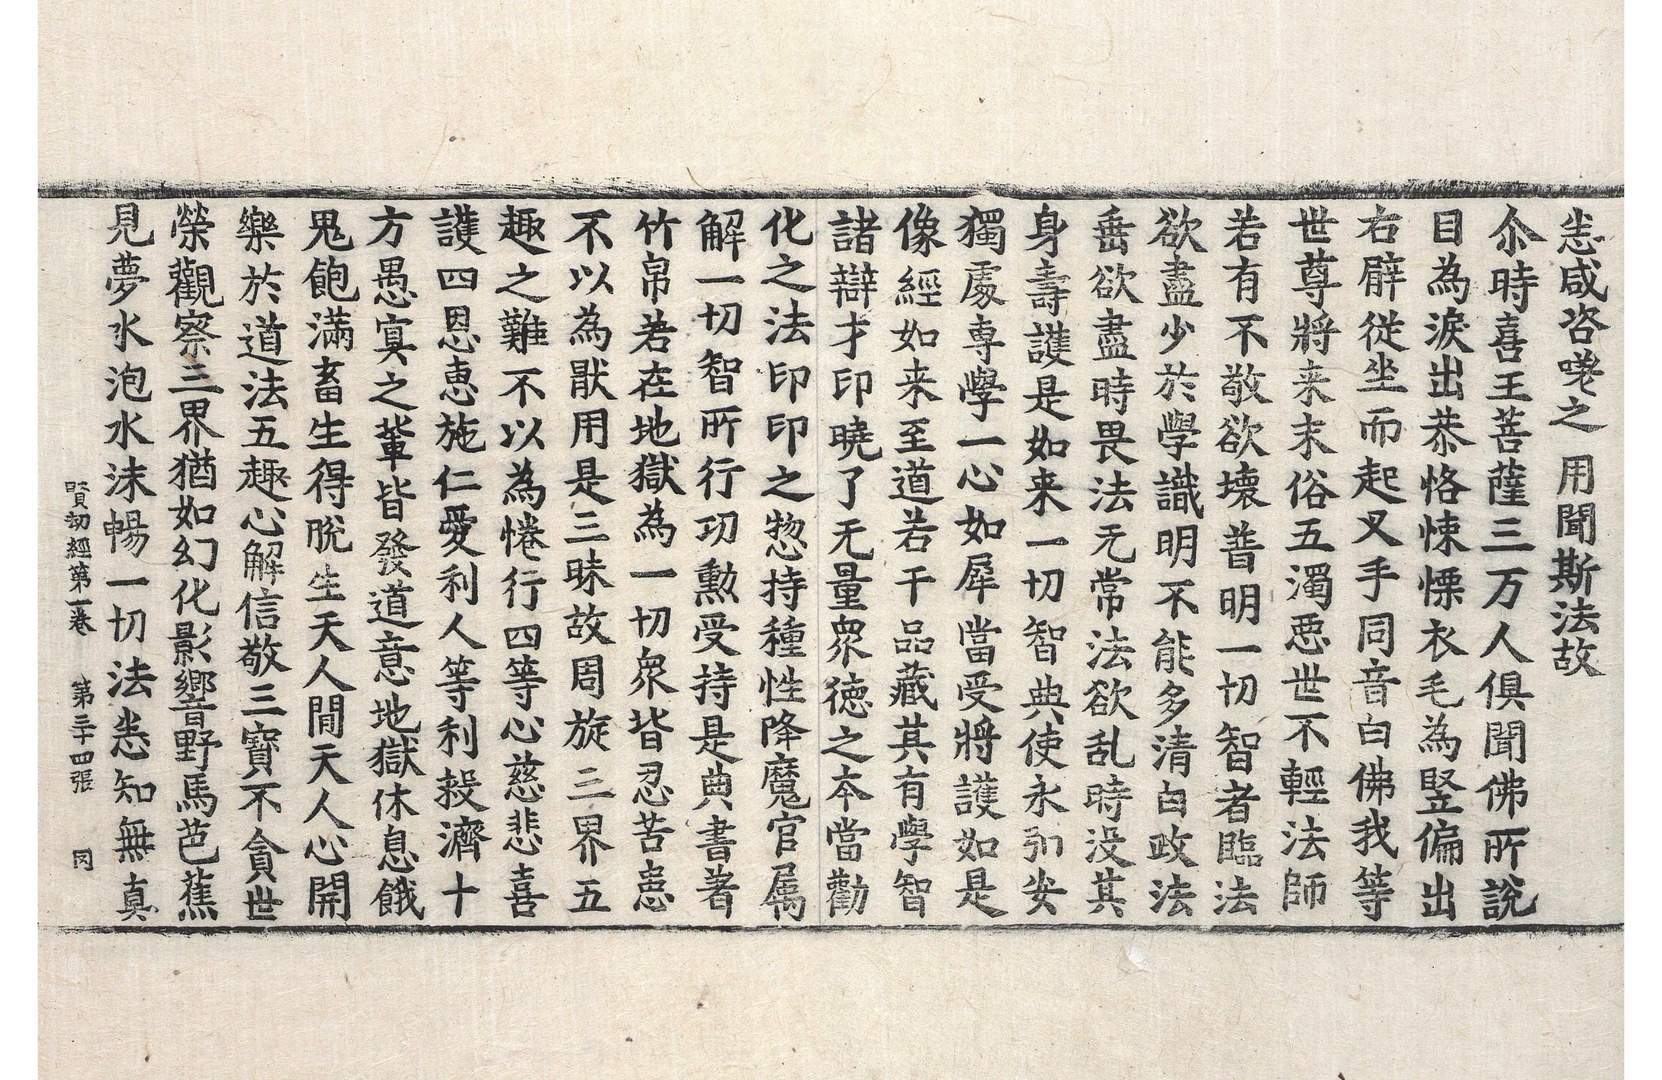 恙咸咨嗟之 用聞斯法故
尒時喜王菩薩三万人俱聞佛所說
目為淚出恭恪悚慄衣毛為竪偏出
右臂從坐而起叉手同音白佛我等
世尊將来末俗五濁惡世不輕法師
若有不敬欲壞普明一切智者臨法
欲盡少於學識明不能多清白政法
垂欲盡時畏法无常法欲乱時没其
身壽護是如来一切智典使永安
獨處專學一心如犀當受將護如是
像經如来至道若干品藏其有學智
諸辯才印曉了无量衆徳之本當勸
化之法印印之惣持種性降魔官属
解一切智所行㓛勳受持是典書著
竹帛若在地獄為一切衆皆忍苦患
不以為猒用是三昧故周旋三界五
趣之難不以為惓行四等心慈悲喜
護四恩恵施仁愛利人等利救濟十
方愚冥之輩皆發道意地獄休息餓
鬼飽滿畜生得脫生天人間天人心開
樂於道法五趣心解信敬三寶不貪世
榮觀察三界猶如幻化影響野馬芭蕉
見夢水泡水沫暢一切法恙知無真
賢劫經第一卷 第三十四張